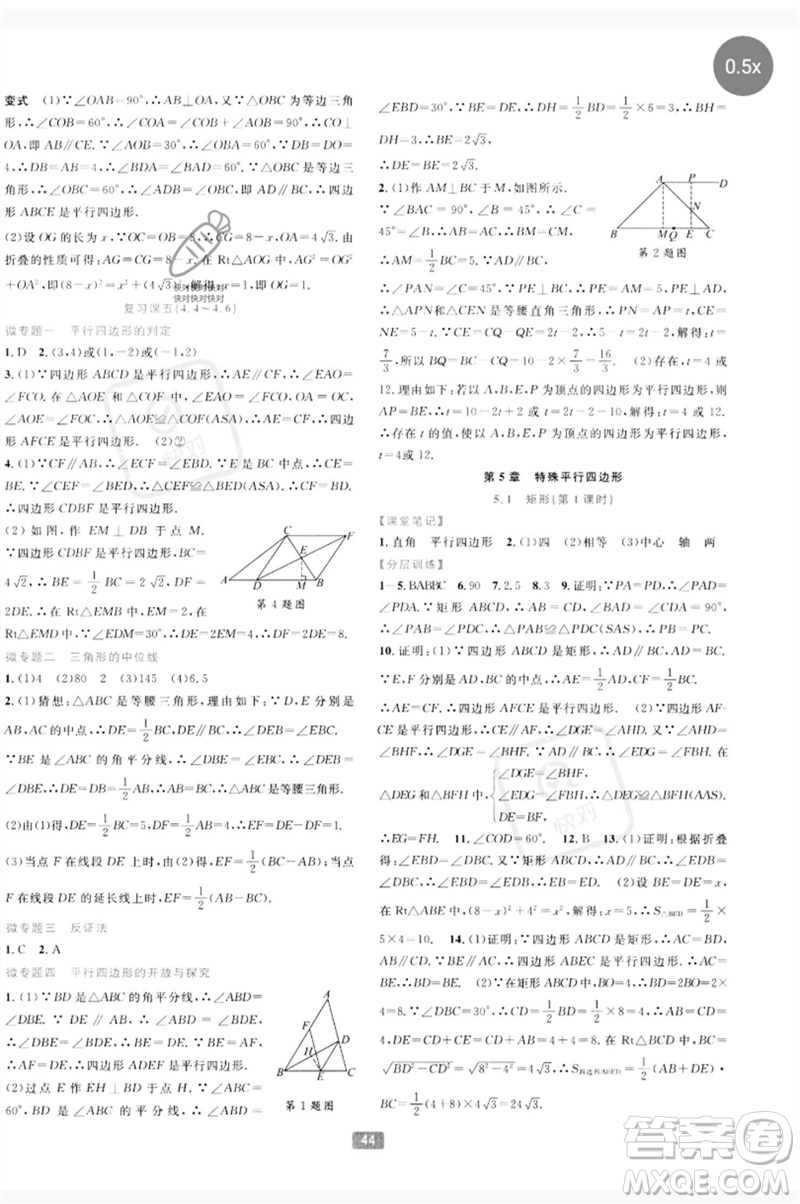 0.5x
变式 (1)∵∠OAB=90°,∴AB⊥OA,又∵△OBC为等边三角
形,∴∠COB=60°,∴∠COA=∠COB+∠BOA=90°,∴CO⊥
OA,即AB∥OC,即AB∥CE,∴∠DOA=60°.∵DB=DO=
4,∴DB=AB=4,∴△BDA是等边三角形,∴∠BAD=60°,
∴∠BAD=∠AOE=60°,即AD∥OE,即BC∥AE,∴四边
形ABCE是平行四边形.
(2)设OG的长为x,∵OC=OB=8,∴CG=8-x,由
折叠的性质可得:AG=CG=8-x,在Rt△AOG中,AG²=OG²
+OA²,即(8-x)²=x²+(4√3)²,解得:x=1,即OG=1.
快对快对快对
快对快对快对
复习课五(4.4~4.6)
微专题一 平行四边形的判定
1.D 2.(3,4)或(1,-2)或(-1,2)
3.(1)∵四边形ABCD是平行四边形,∴AE∥CF,∴∠EAO=
∠FCO.在△AOE和△COF中,∵∠EAO=∠FCO,AO=
CO,∠AOE=∠COF,∴△AOE≌△COF(ASA).∴四边
形AFCE是平行四边形. (2)②
4.(1)∵CF∥AB,∴∠ECF=∠EBD.∵E是BC中点,∴CE
=BE.∵∠CEF=∠BED,∴△CEF≌△BED(ASA).∴CF
=BD.∴四边形CDBF是平行四边形.
(2)如图,作EM⊥DB于点M.∵
四边形CDBF是平行四边形,BC=
4√2,∴BE=1/2BC=2√2,DF=
2DE.在Rt△EMB中,EM=2,在
Rt△EMD中,∵∠EDM=30°,∴DE=2EM=4,∴DF=2DE=8.
C F E A D M B
第4题图
微专题二 三角形的中位线
1.(1)4 (2)80 2 (3)145 (4)6.5
2.(1)猜想:△ABC是等腰三角形.理由如下:∵D,E分别是
AB,AC的中点,∴DE=1/2BC,DE∥BC,∴∠DEB=∠EBC.
∵BE是∠ABC的平分线,∴∠DBE=∠EBC,∴∠DEB=
∠DBE,∴DE=DB=1/2AB,∴AB=BC,∴△ABC是等腰三角形.
(2)由(1)得:DE=1/2BC=5,DF=1/2AB=4,∴EF=DE-DF=1.
(3)当点F在线段DE上时,由(2)得,EF=1/2(BC-AB);当点
F在线段DE的延长线上时,EF=1/2(AB-BC).
微专题三 反证法
1.C 2.A
微专题四 平行四边形的开放与探究
1.(1)∵BD是△ABC的角平分线,∴∠ABD
=∠DBE.∵DE∥AB,∴∠ABD=∠BDE,
∴∠DBE=∠BDE.∴BE=DE.∵BE=AF,
∴AF=DE.∴四边形ADEF是平行四边形.
(2)过点E作EH⊥BD于点H.∵∠ABC=
60°,BD是∠ABC的平分线,∴∠ABD=
A F D H B E C
第1题图
∠EBD=30°,∵BE=DE,∴BH=DH=1/2BD=1/2×6=3.∴BH=
DH=3,
∴BE=2√3,
∴DE=BE=2√3.
2.(1)作AM⊥BC于M,如图所示.
∵∠BAC=90°,∠B=45°,∴∠C=
45°=∠B,∴AB=AC,∴BM=CM,
∴AM=1/2BC=5,∵AD∥BC,
∴∠PAN=∠C=45°,∵PE⊥BC,∴PE=AM=5,PE⊥AD,
∴△APN和△CEN是等腰直角三角形,∴PN=AP=t,CE=
NE=5-t,∵CE=CQ-QE=2t-2,∴5-t=2t-2,解得:t=
7/3,所以BQ=BC-CQ=10-2×7/3=16/3. (2)存在,t=4或
12.理由如下:若以A,B,E,P为顶点的四边形为平行四边形,则
AP=BE,∴t=10-2t+2或t=2t-2-10,解得:t=4或12.
∴存在t的值,使以A,B,E,P为顶点的四边形为平行四边形,
t=4或12.
A P D N B M Q E C
第2题图
第5章 特殊平行四边形
5.1 矩形(第1课时)
【课堂笔记】
1.直角 平行四边形 2.(1)四 (2)相等 (3)中心 轴 两
【分层训练】
1—5.BABBC 6.90 7.2.5 8.3 9.证明:∵PA=PD,∴∠PAD=
∠PDA.∵矩形ABCD,∴∠BAD=∠ADC=90°,AB=
CD,∴∠BAP=∠CDP,∴△PAB≌△PDC(SAS),∴PB=PC.
10.证明:(1)∵四边形ABCD是矩形,∴AD∥BC,AD=BC,
∵E,F分别是AD,BC的中点,∴AE=1/2AD,CF=1/2BC,
∴AE=CF,∴四边形AFCE是平行四边形.(2)∵四边形AF-
CE是平行四边形,∴CE∥AF,∴∠DGE=∠AHD.∵∠AHD
=∠BHF,∴∠DGE=∠BHF,∵AD∥BC,∴∠EDG=∠FBH,在
△DEG和△BFH中, ∠DGE=∠BHF, ∠EDG=∠FBH, DE=BF, ∴△DEG≌△BFH(AAS).
∴EG=FH. 11.∠COD=60°. 12.B 13.(1)证明:根据折叠
得:∠EBD=∠CBD,∵矩形ABCD,∴AD∥BC,∴∠EDB=
∠CBD,∴∠EBD=∠EDB,∴BE=DE. (2)设BE=DE=x,
在Rt△ABE中,(8-x)²+4²=x²,解得:x=5,∴S△BED=1/2
×5×4=10. 14.(1)证明:∵四边形ABCD是矩形,∴AC=BD,
AB∥CD.∵BE∥AC,∴四边形ABEC是平行四边形,∴AC=BE,
∴BD=BE. (2)∵在矩形ABCD中,BO=4,∴BD=2BO=2×4
=8.∵∠DBC=30°,∴CD=1/2BD=1/2×8=4,∴AB=CD=
4,DE=CD+CE=CD+AB=4+4=8,在Rt△BCD中,BC=
√BD²-CD²=√8²-4²=4√3,∴S四边形ABED=1/2(AB+DE)·
BC=1/2(4+8)×4√3=24√3.
44
快对
快对
答案圈
MXQE.COM